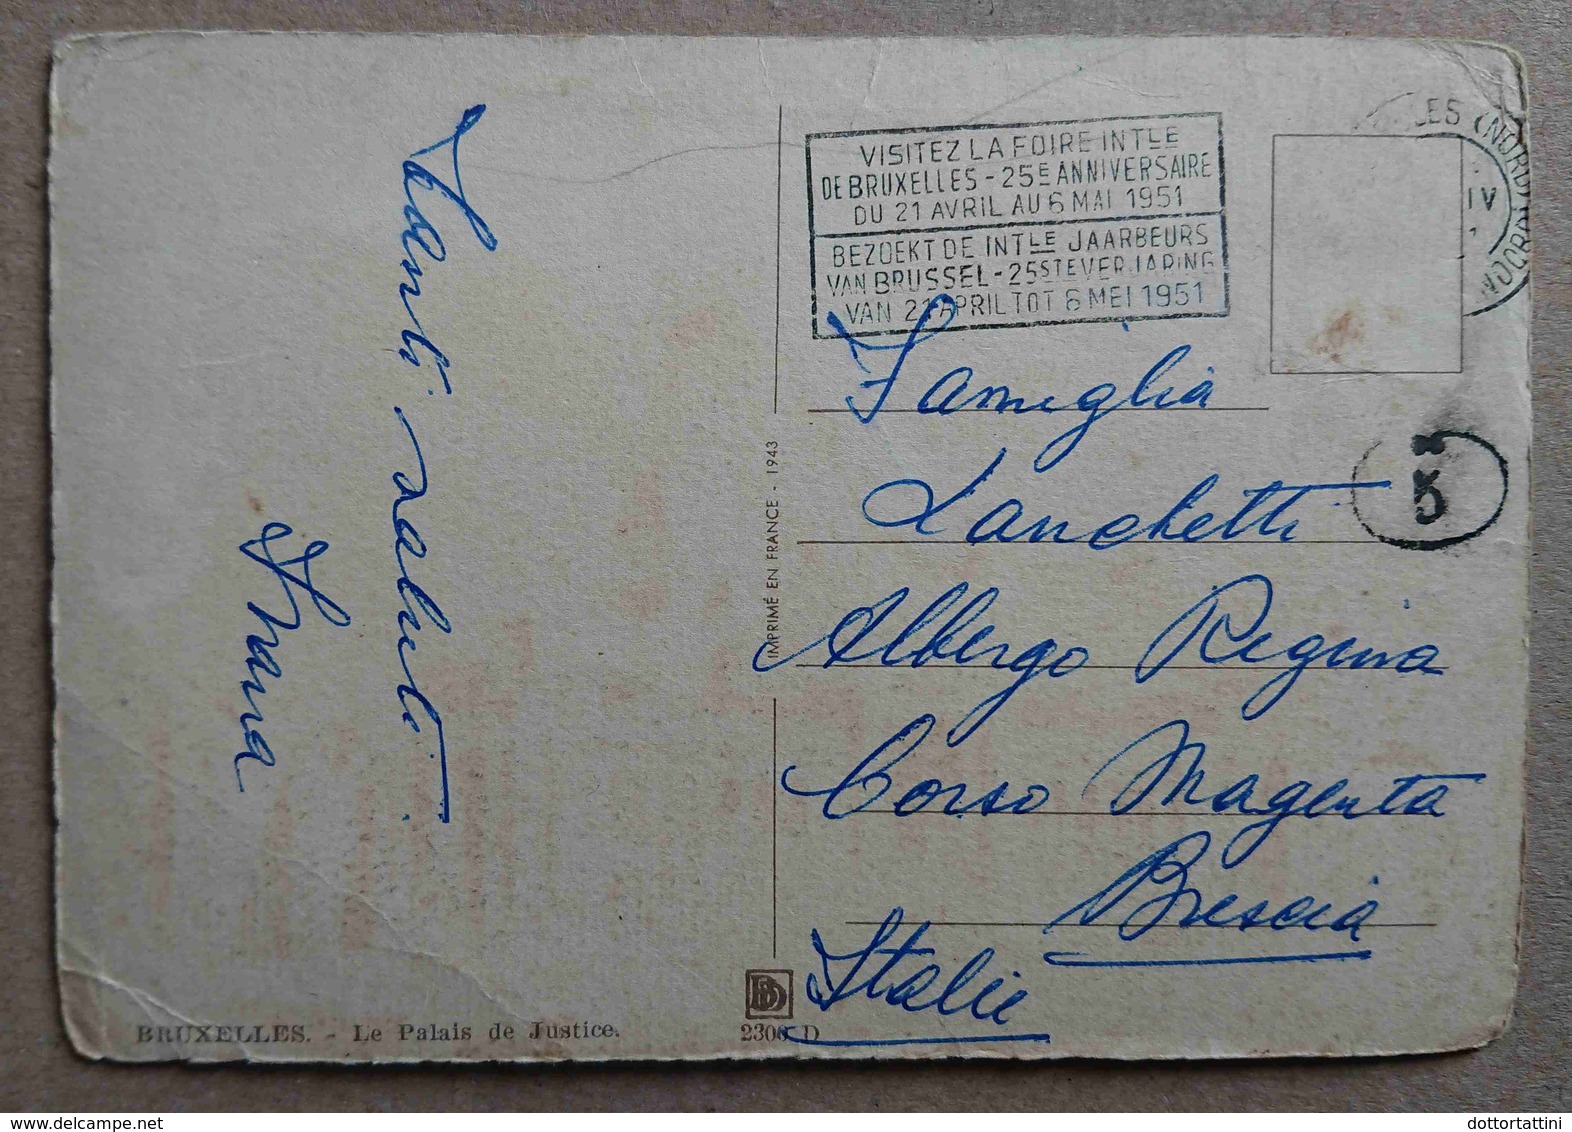 VISITEZ LA FOIRE INTLE
DE BRUXELLES - 25E ANNIVERSAIRE
DU 21 AVRIL AU 6 MAI 1951
BEZOEKT DE INTLE JAARBEURS
VAN BRUSSEL - 25STE VERJARING
VAN 21 APRIL TOT 6 MEI 1951
LES (NORD)
IV
NOORD
5
Saluti
Famiglia
Zanchetti
Albergo Regina
Corso Magenta
Brescia
Italie
IMPRIMÉ EN FRANCE - 1943
BD
BRUXELLES. - Le Palais de Justice.
2306 D
dottortattini